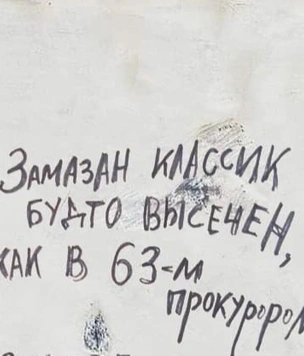 ЗАМАЗАН КЛАССИК
БУДТО ВЫСЕЧЕН,
КАК В 63-М
ПРОКУРОРОМ